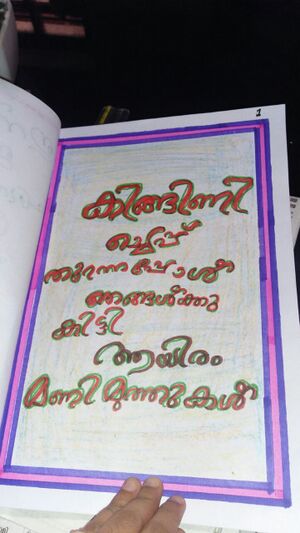 1
കിങ്ങിണി
ച്ചെപ്പ്
തുറന്നപ്പോൾ
ഞങ്ങൾക്കു
കിട്ടി
ആയിരം
മണിമുത്തുകൾ